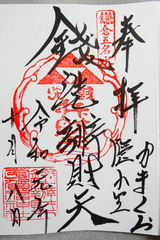 鎌倉五名水
奉拝
かまくら
隠れ里
銭洗辨財天
令和元年
十月
八日